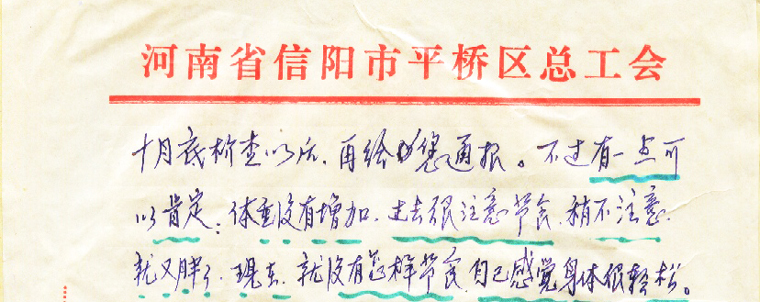 河南省信阳市平桥区总工会
十月底检查以后，再给您通报。不过有一点可
以肯定：体重没有增加，过去很注意节食，稍不注意，
就又胖了，现在，就没有怎样节食，自己感觉身体很轻松。